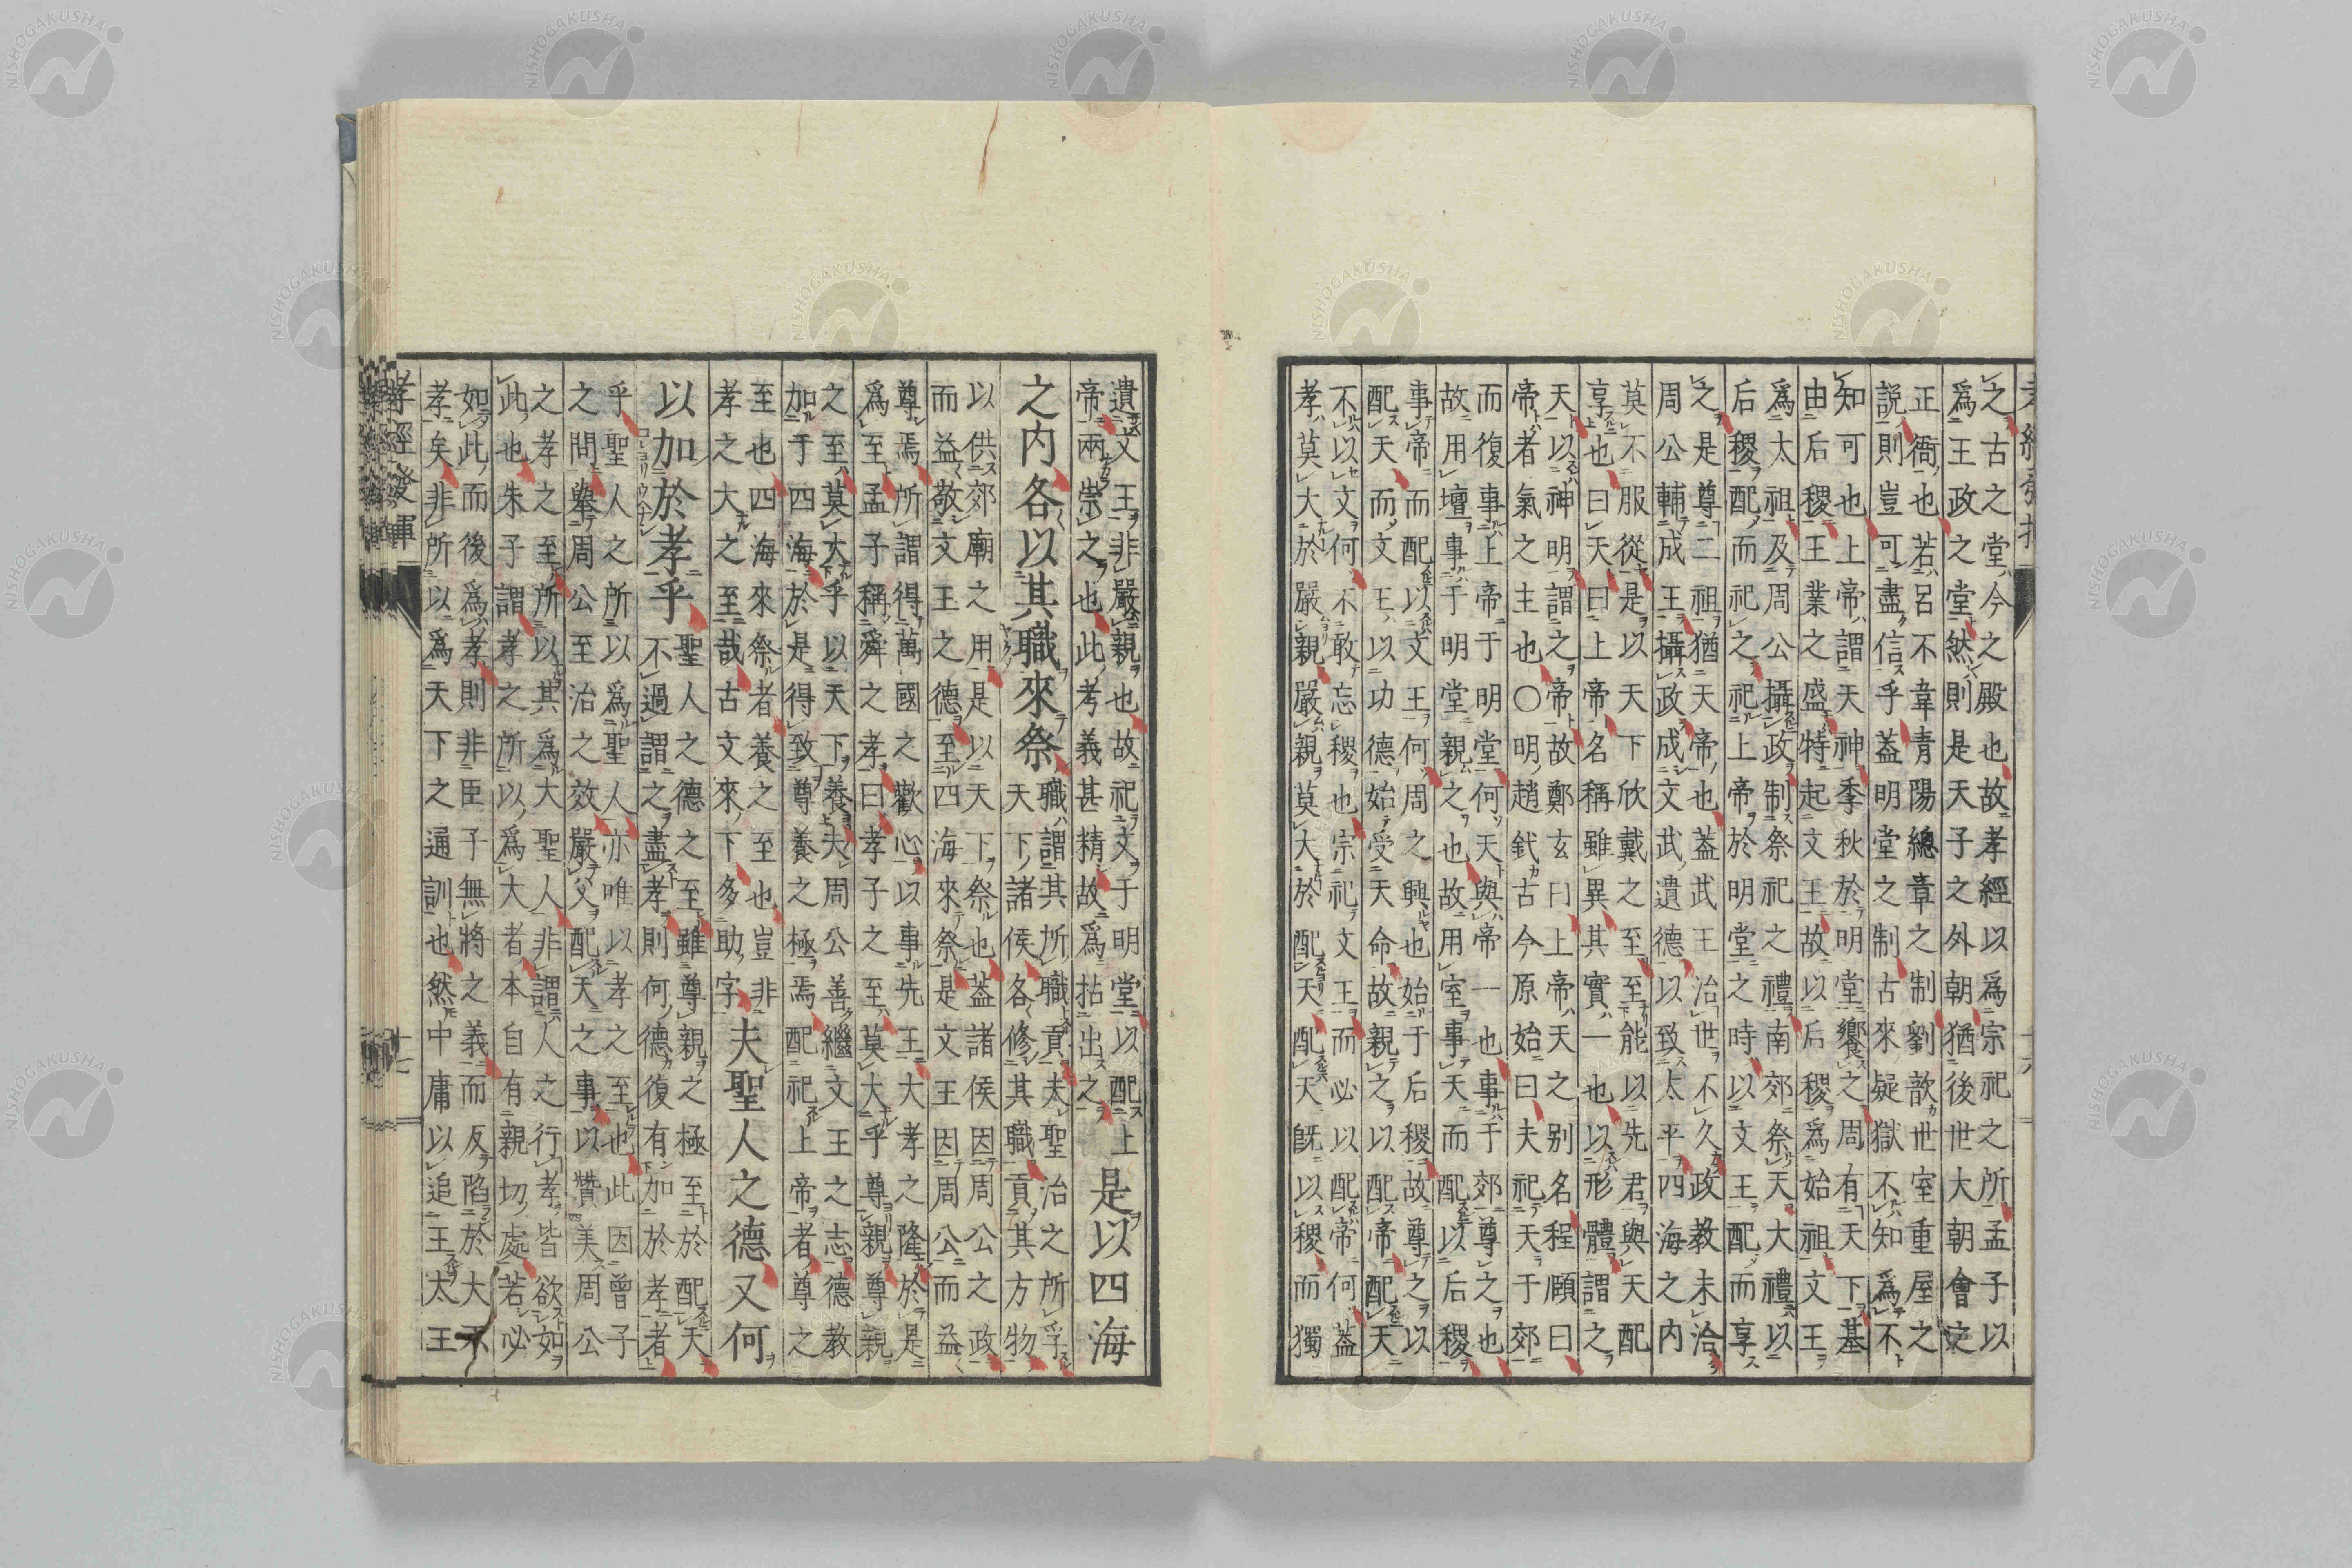 之古之堂今之殿也故孝經以爲宗祀之所孟子以
爲王政之堂然則是天子之外朝猶後世大朝會之
正衙也若呂不韋青陽總章之制劉歆世室重屋之
説則豈可盡信乎葢明堂之制古來疑獄不知爲不
知可也上帝謂天神季秋於明堂饗之周有天下基
由后稷王業之盛特起文王故以后稷爲始祖文王
爲太祖及周公攝政制祭祀之禮南郊祭天大禮以
后稷配而祀之祀上帝於明堂之時以文王配而享
之是尊二祖猶天帝也葢武王冶世不久政教未洽
周公輔成王攝政成文武遺德以致太平四海之内
莫不服從是以天下欣戴之至至能以先君與天配
享也曰天曰上帝名稱雖異其實一也以形體謂之
天以神明謂之帝故鄭玄曰上帝天之别名程願曰
帝者氣之主也〇明趙釴古今原始曰夫祀天于郊
而復事上帝于明堂何天與帝一也事于郊尊之也
故用壇事于明堂親之也故用室事天而配以后稷
事帝而配以文王何周之興也始于后稷故尊之以
配天而文王以功德始受天命故親之以配帝配天
不以文何不敢忘稷也宗祀文王而必以配帝何葢
孝莫大於嚴親嚴親莫大於配天配天旣以稷而獨
遺文王非嚴親也故祀文于明堂以配上
帝兩崇之也此考義甚精故爲拈出之
是以四海
之内各以其職來祭
職謂其所職貢夫聖治之所孚
天下諸侯各修其職貢其方物
以供郊廟之用是以天下祭也葢諸侯因周公之政
而益敬文王之德至四海來祭是文王因周公而益
尊焉所謂得萬國之歡心以事先王大孝之隆於是
爲至孟子稱舜之孝曰孝子之至莫大乎尊親尊親
之至莫大乎以天下養夫周公善繼文王之志德教
加于四海於是得致尊養之極焉配祀上帝者尊之
至也四海來祭者養之至也豈非
孝之大之至哉古文來下多助字
夫聖人之德又何
以加於孝乎
聖人之德之至雖尊親之極至於配天
不過謂之盡孝則何德復有加於孝者
乎聖人之所以爲聖人亦唯以孝之至也此因曾子
之問擧周公至治之效嚴父配天之事以贊美周公
之孝之至所以其爲大聖人非謂人之行孝皆欲如
此也朱子謂孝之所以爲大者本自有親切處若必
如此而後爲孝則非臣子無將之義而反陷於大不
孝矣非所以爲天下之通訓也然中庸以追王太王
孝經發揮
十七